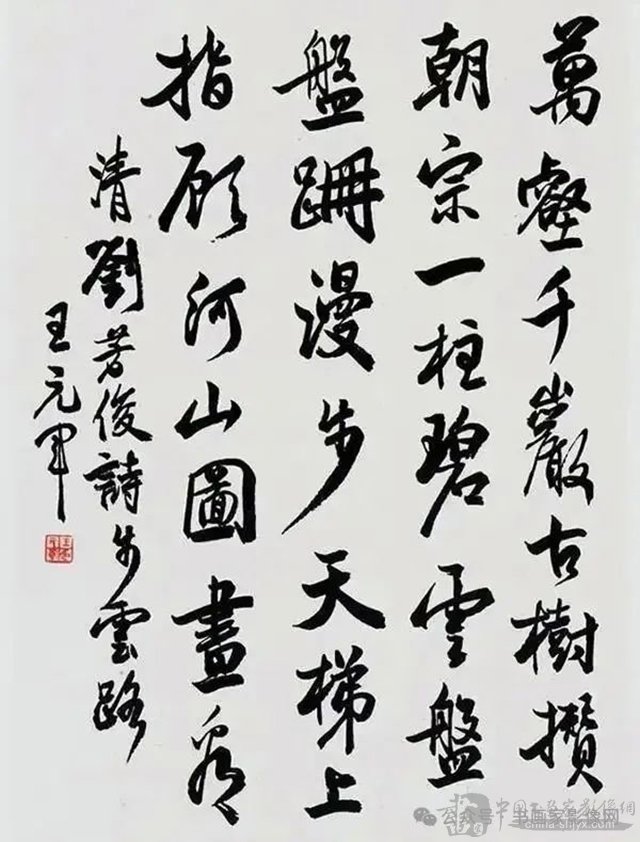 萬壑千巖古樹攢
朝宗一柱碧雲盤
盤跚漫步天梯上
指顧河山圖畫看
清劉芳俊詩步雲路
王元軍
公众号·书画家影像网
china-shjyx.com